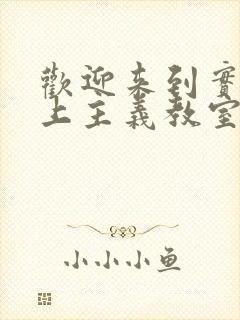 歡迎来到實
上主義教室
小小小鱼